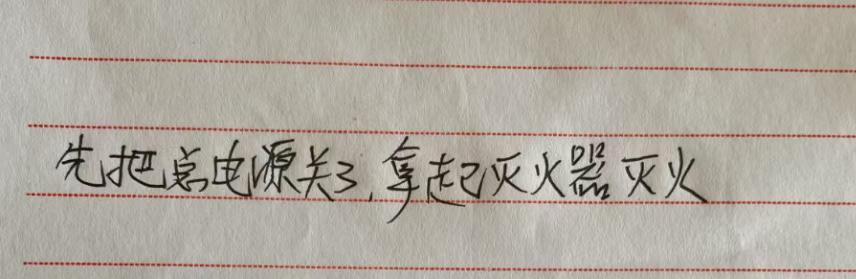 先把总电源关了,拿起灭火器灭火